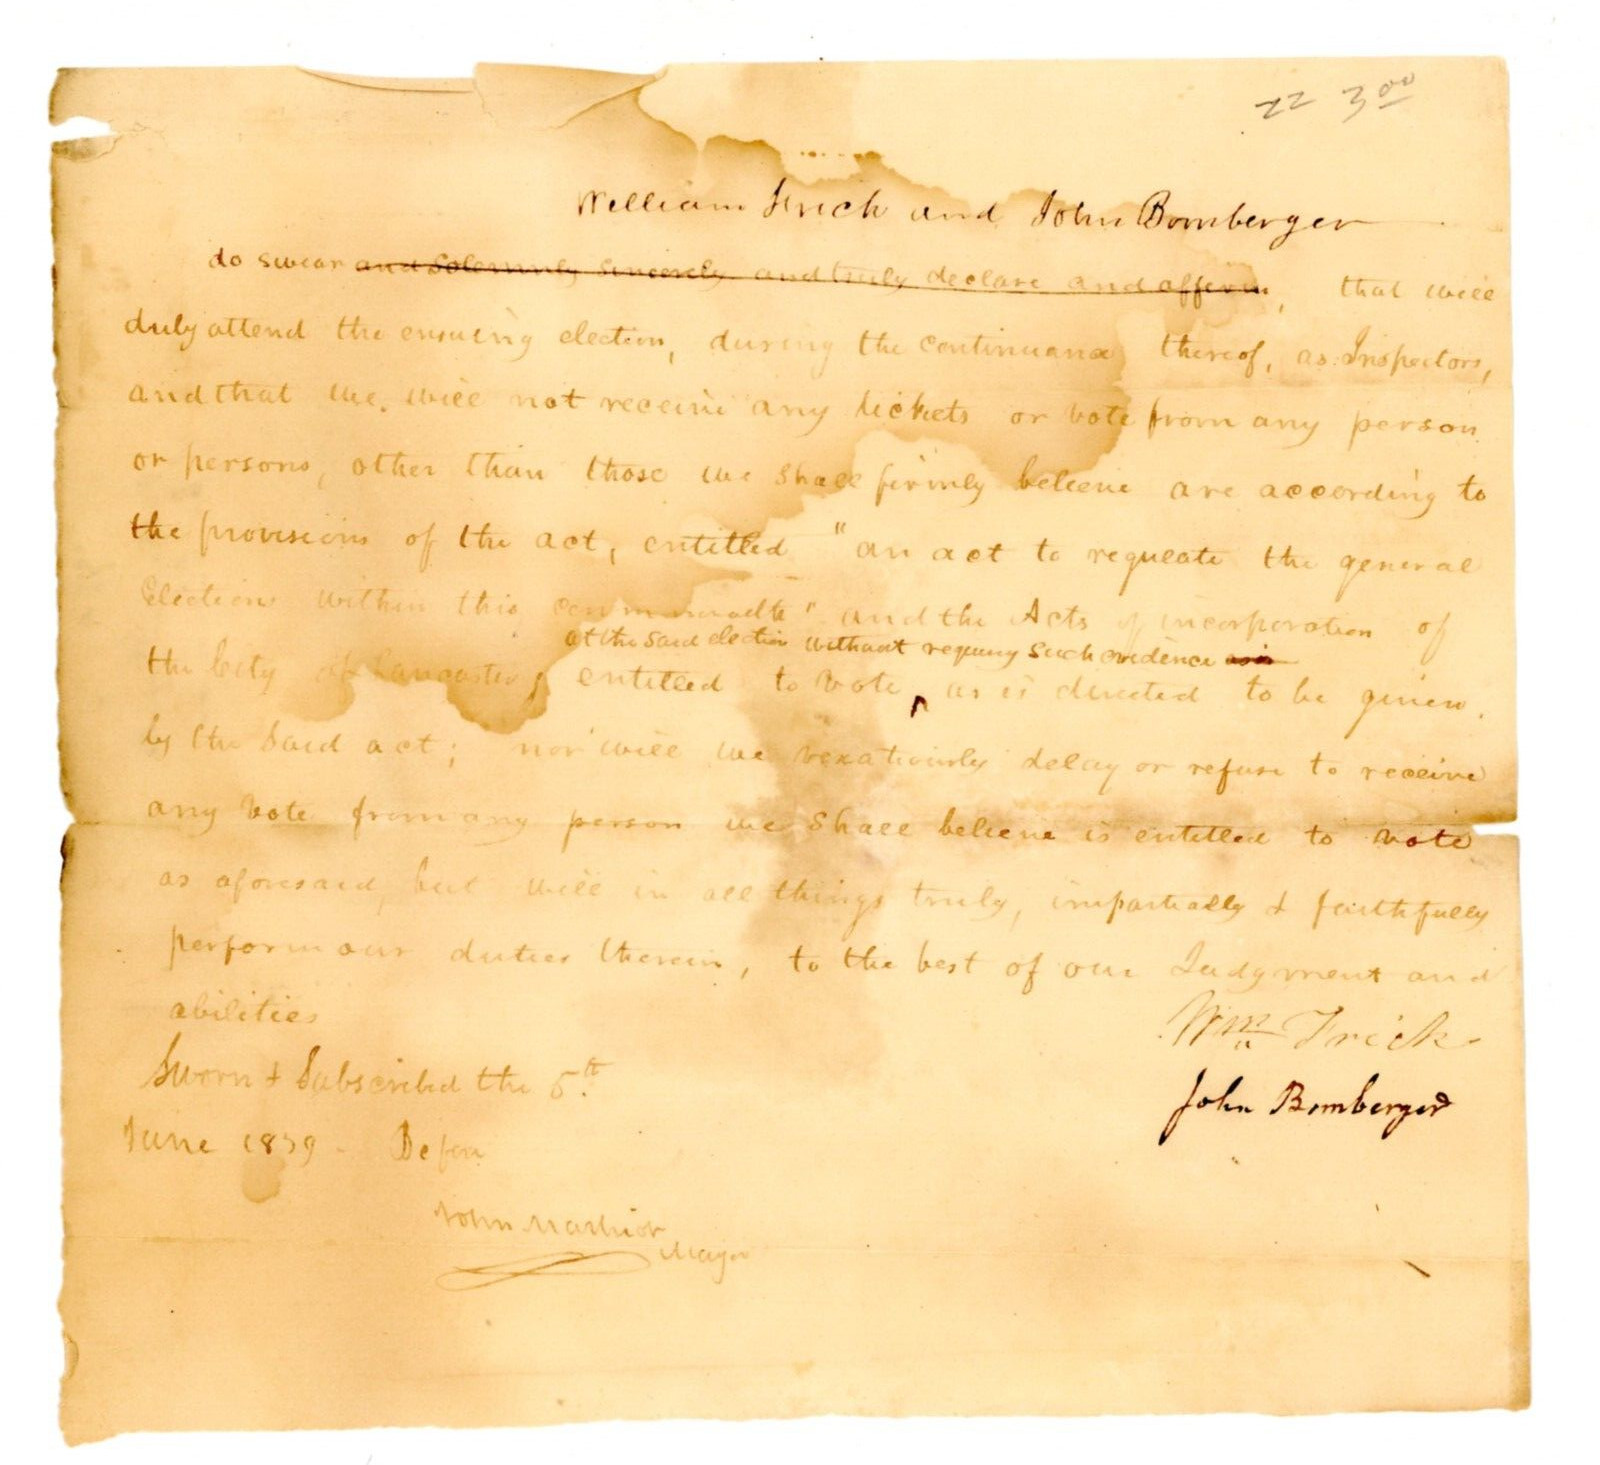 22 3.00
William Frick and John Bomberger
do swear and solemnly sincerely and truly declare and affirm, that will
duly attend the ensuing election, during the continuance thereof, as Inspectors,
and that we will not receive any tickets or vote from any person
or persons, other than those we shall firmly believe are according to
the provisions of the act, entitled "an act to regulate the general
Elections within this commonwealth" and the Acts of incorporation of
at the said election without requiring such evidence
the City of Lancaster, entitled to vote, as is directed to be given
by the said act; nor will we vexatiously delay or refuse to receive
any vote from any person we shall believe is entitled to vote
as aforesaid, but will in all things truly, impartially & faithfully
perform our duties therein, to the best of our Judgment and
abilities
Wm Frick
Sworn & Subscribed the 5th
John Bomberger
June 1839 - Before
John Mathiot
Mayor